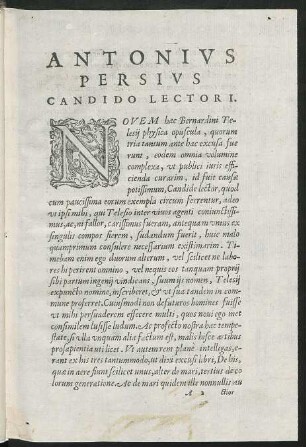 ANTONIVS
PERSIVS
CANDIDO LECTORI.
NOVEM hæc Bernardini Te-
lesij physica opuscula, quorum
tria tantum ante hac excusa fue
runt, eodem omnia volumine
complexa, vt publici iuris effi-
cienda curarim, id fuit causæ
potissimum, Candide lector, quod
cum paucissima eorum exempla circum ferrentur, adeo
vt ipsemihi, qui Telesio inter viuos agenti coniunctissi-
mus, ac, ni fallor, carissimus fueram, antequam vnius ex
singulis compos fierem, sudandum fuerit, huic malo
quamprimum consulere necessarium existimarim. Ti-
mebam enim ego duorum alterum, vel scilicet ne labo-
res hi perirent omnino, vel nequis eos tanquam proprij
sibi partum ingenij vindicans, suum ijs nomen, Telesij
expuncto nomine, inscriberet, et vt sua tandem in com-
mune proferret. Cuiusmodi non de futuros homines fuisse
vt mihi persuaderem effecere multi, quos noui ego met
consimilem lusisse ludum. Ac profecto nostra hæc tempe-
state, si vlla vnquam alia factum est, malis hisce artibus
prosapientia vti licet. Vt autem rem planè intelligas, e-
rant ex his tres tantummodo, vt dixi excusi libri, De his,
quæ in aere fiunt scilicet vnus, alter de mari, tertius de co
lorum generatione. At de mari quidem ille nonnullis au
A 2 ctior